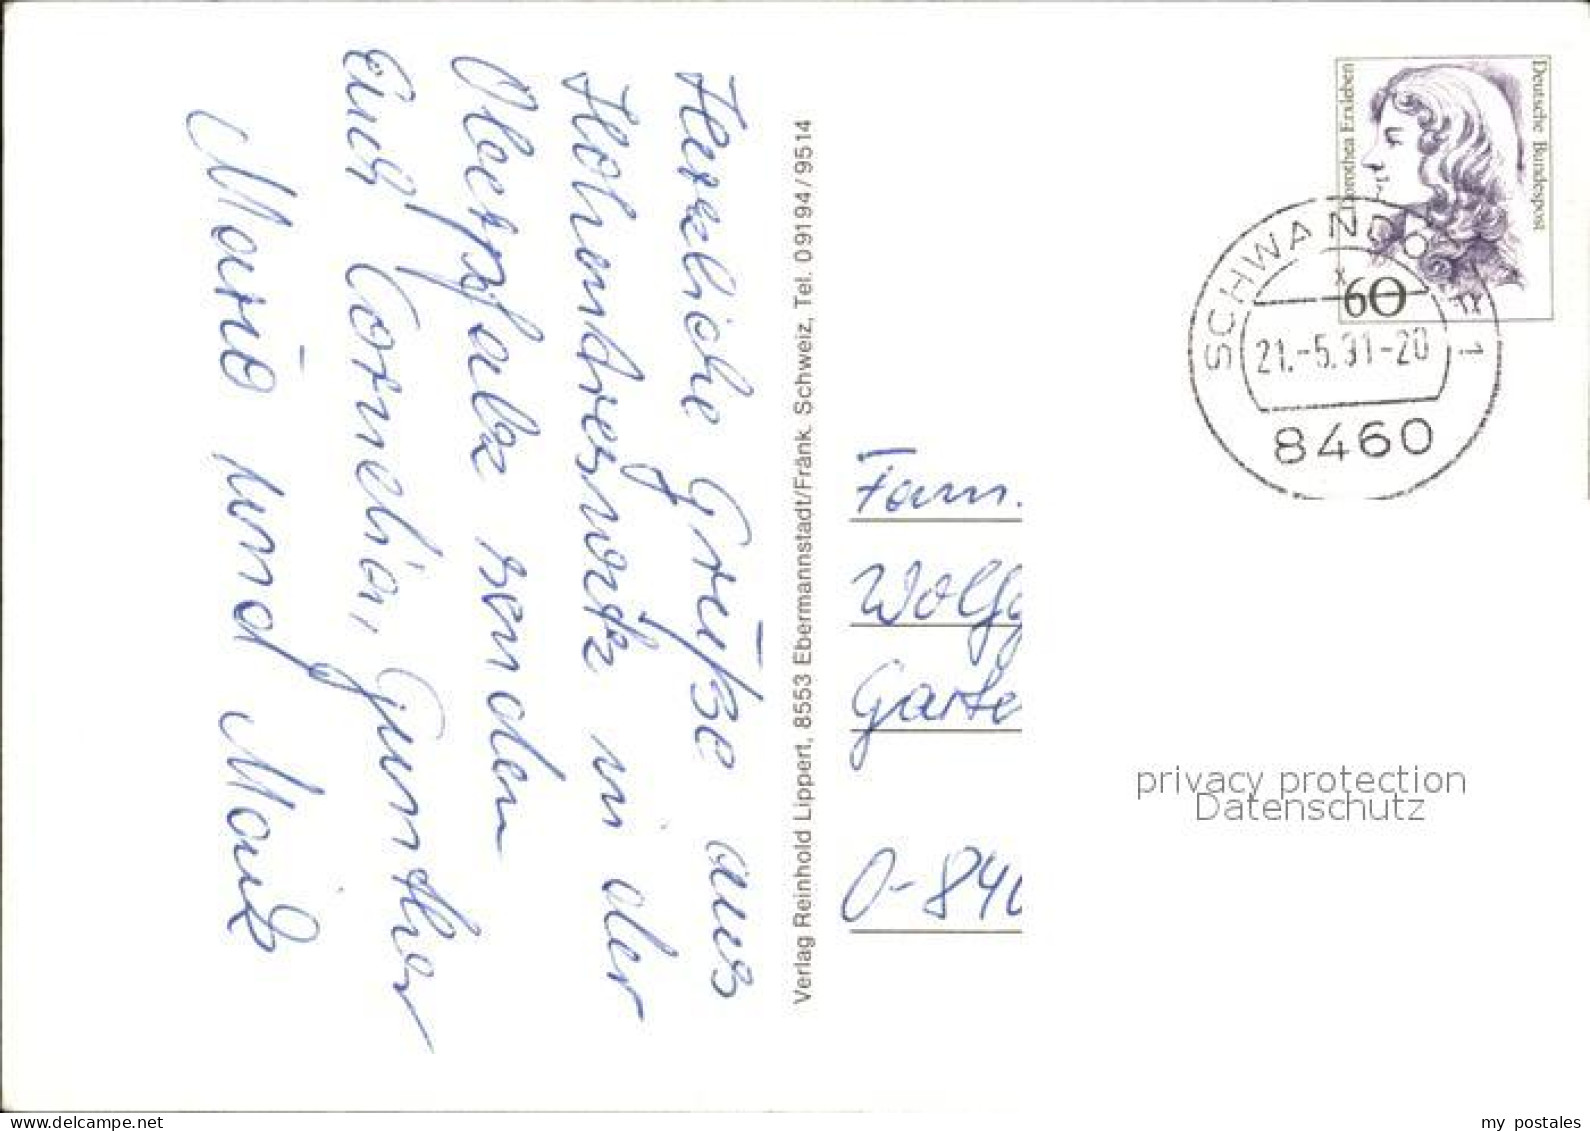 Herzliche Grüße aus
Hohentreswitz in der
Oberpfalz senden
Euch Cornelia, Gunther
Mario und Maik
Verlag Reinhold Lippert, 8553 Ebermannstadt/Fränk. Schweiz, Tel. 09194/9514
Dorothea Erxleben
Deutsche Bundespost
60
SCHWANDORF 1
21.-5.91-20
8460
Fam.
Wolfg
Garte
O-840
privacy protection
Datenschutz
my postales